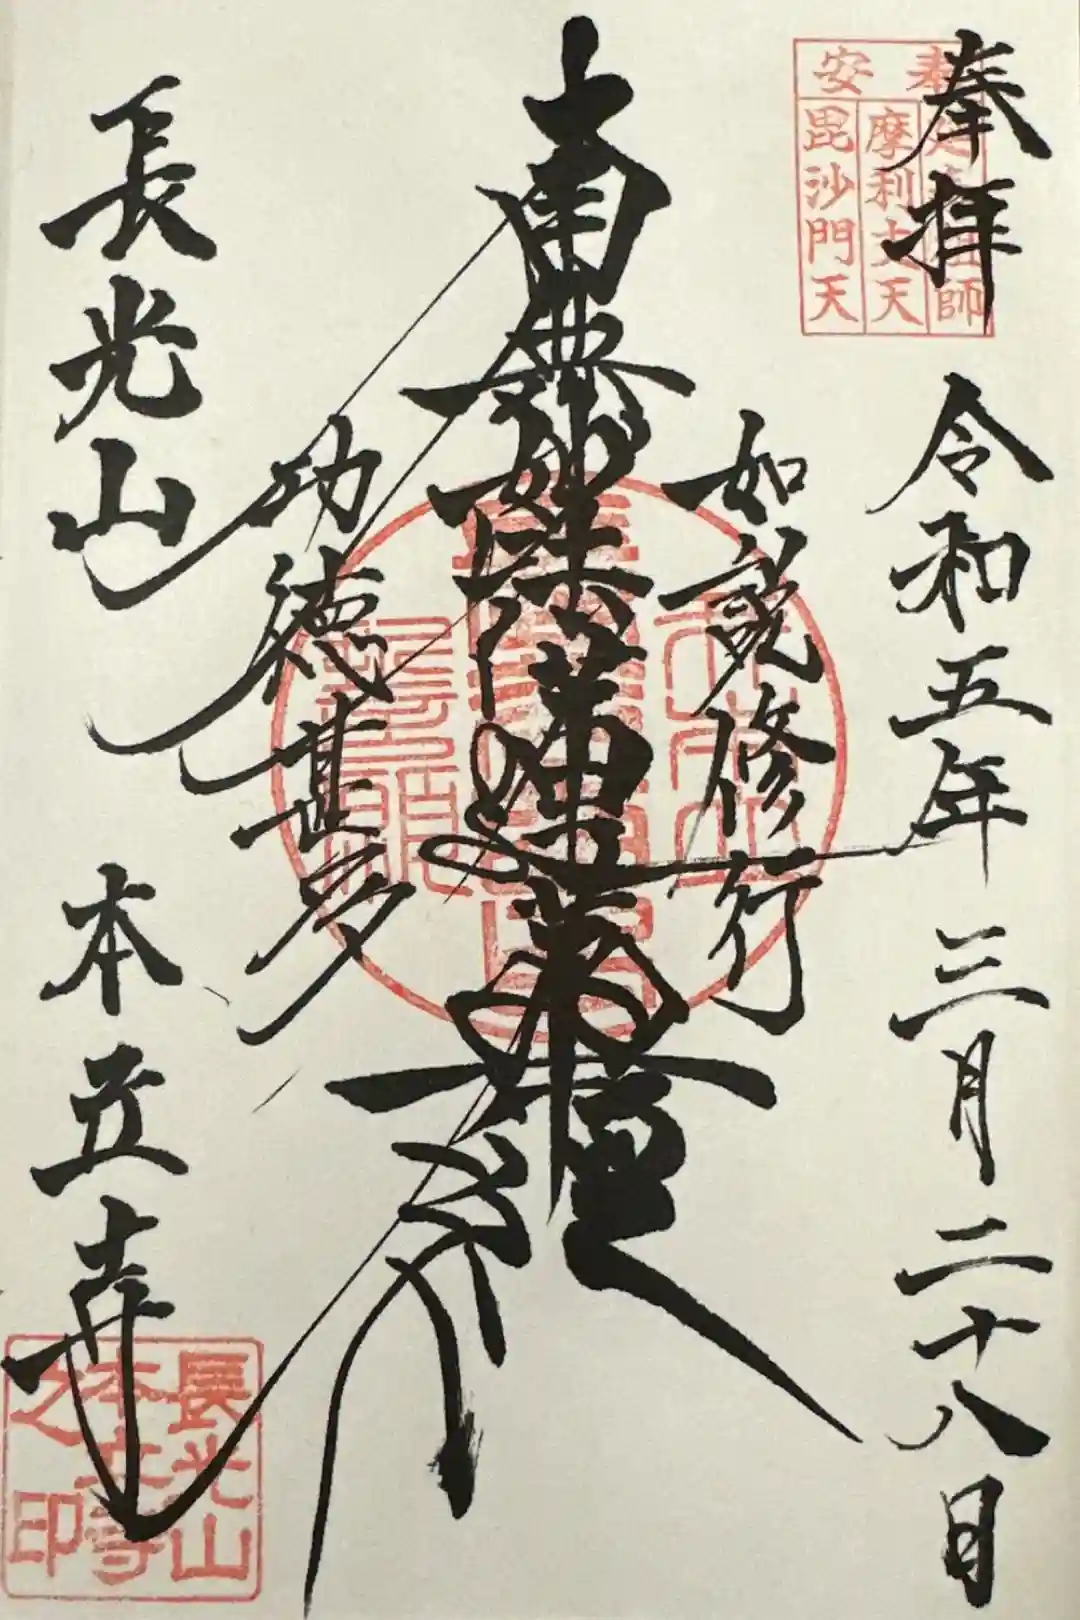 奉拝
令和五年三月二十八日
如説修行
南無妙法蓮華經
功徳甚多
長光山
本立寺
奉安
祖師
摩利支天
毘沙門天
長光山
本立寺
之印